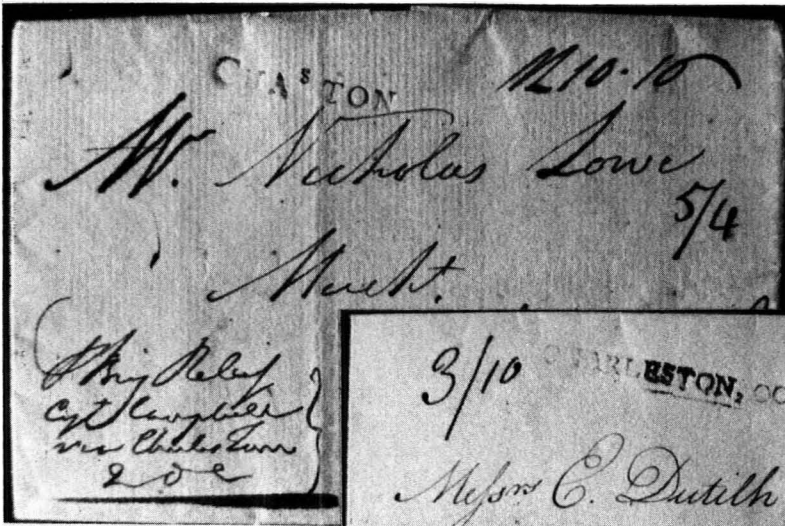 CHAˢTON
10·10
Mr. Nicholas Lowe
5/4
Mercht.
Brig Relief
Capt Campbell
via Charleston
3/10 CHARLESTON,
Messrs E. Dutilh